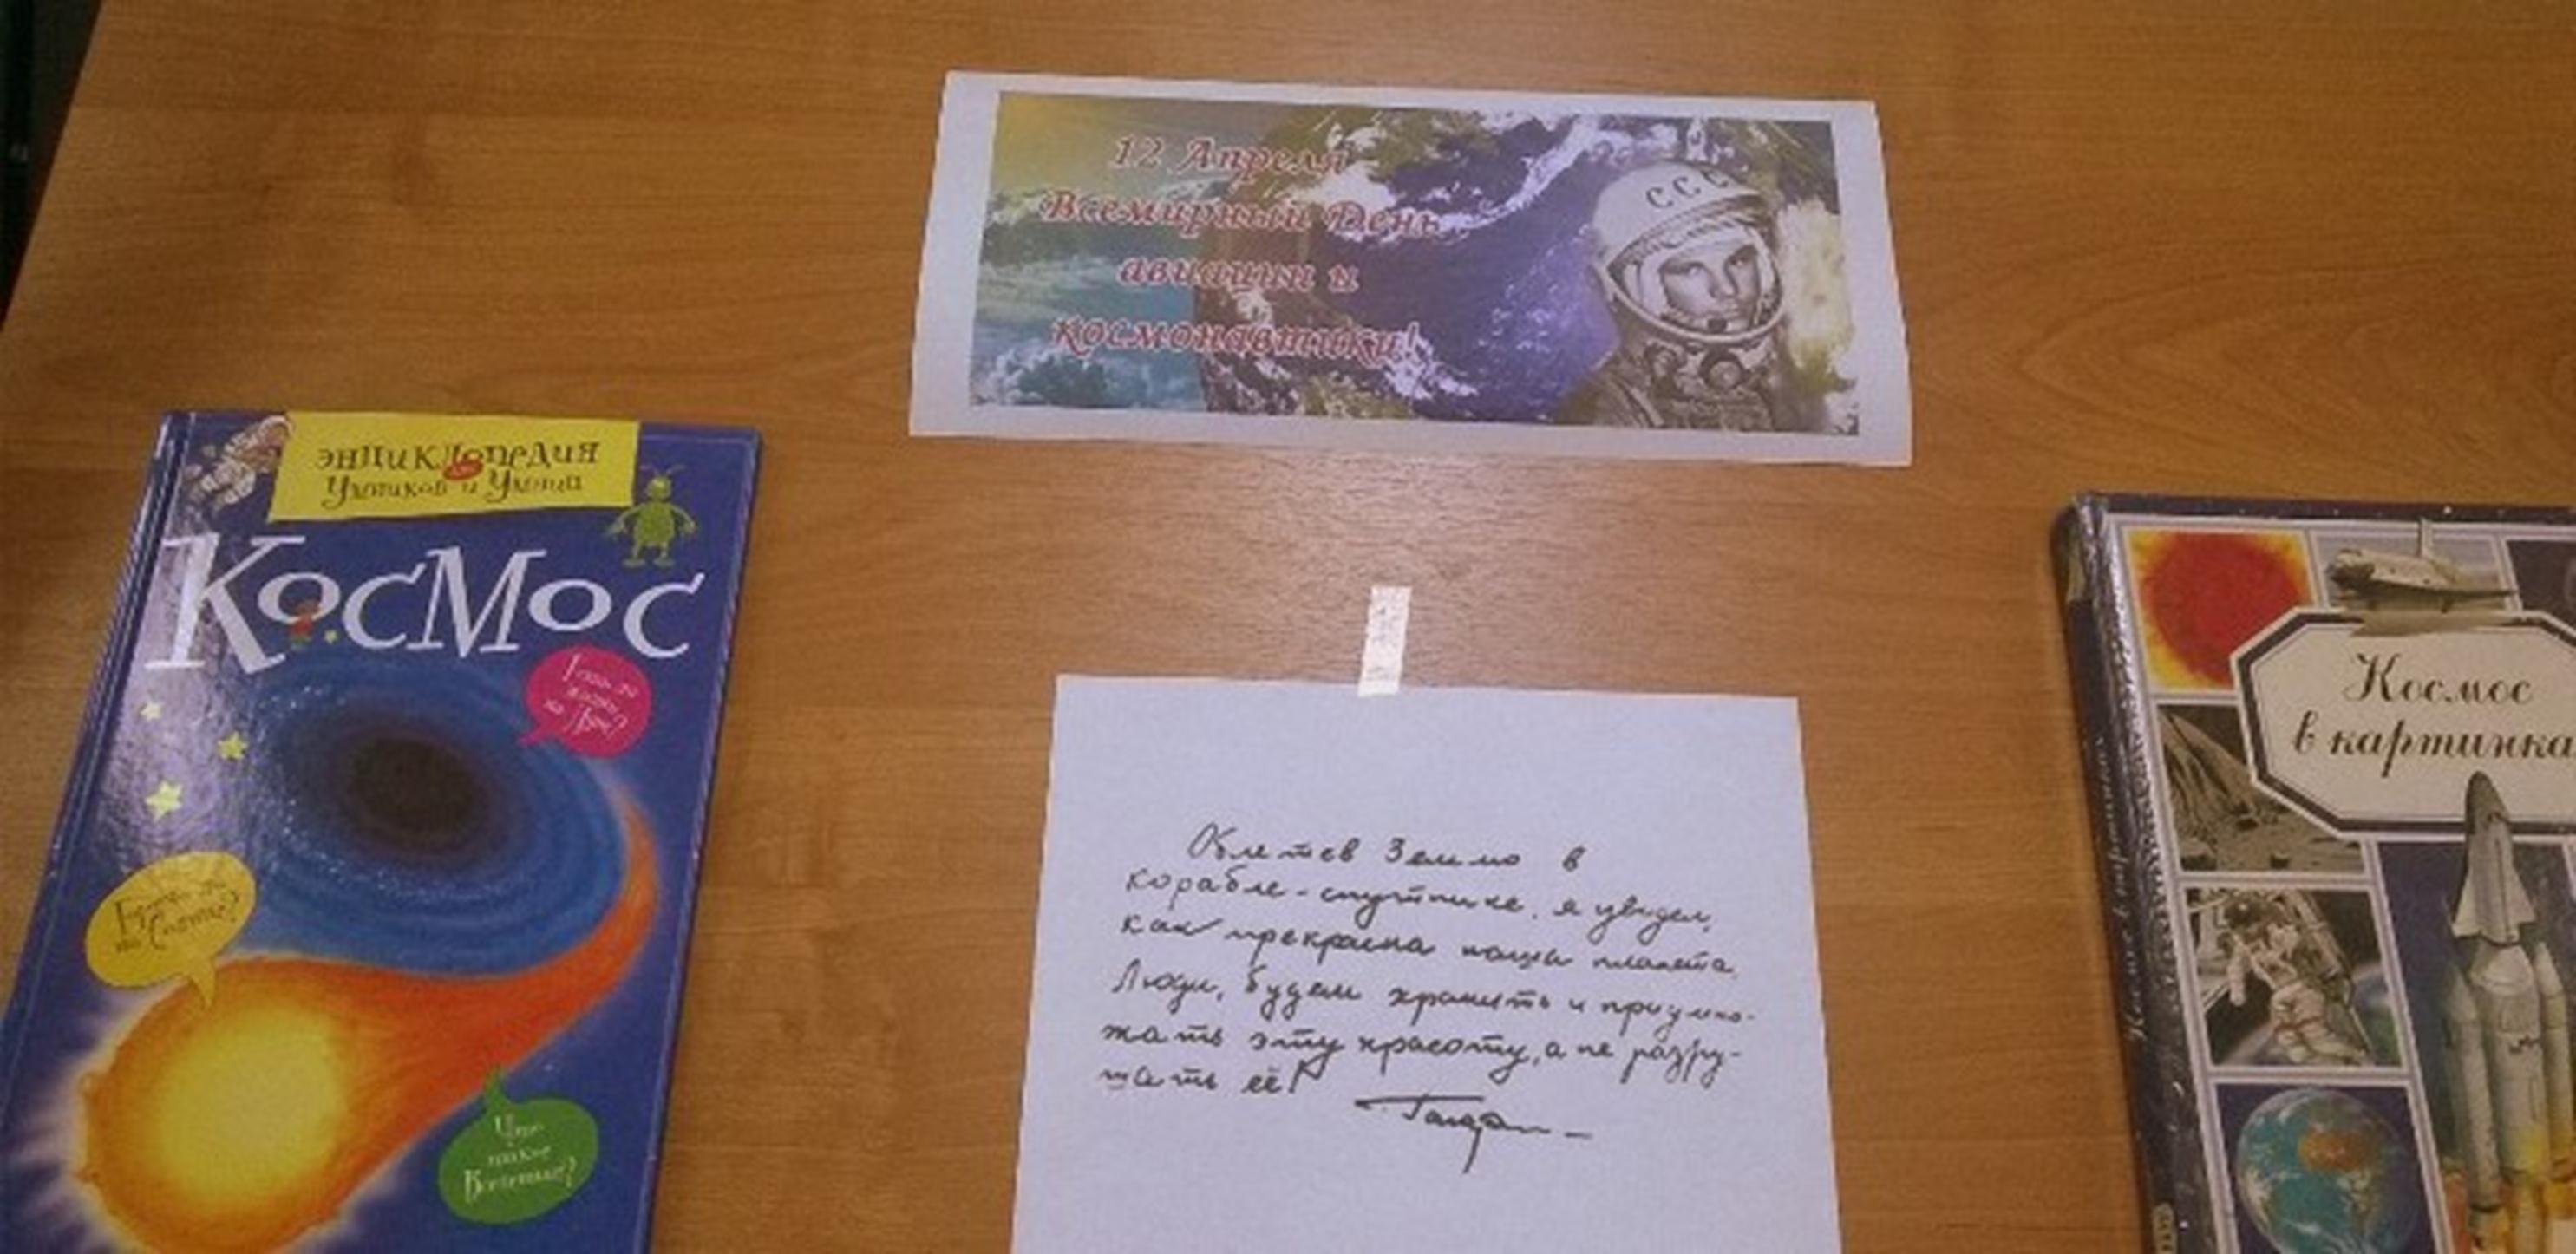 12 Апреля
Всемирный День
авиации и
космонавтики!
ССС
энциклопедия
Умников и Умниц
Космос
Есть ли
жизнь
на
Горячо ли
на Солнце?
Что
такое
Вселенная?
Облетев Землю в
корабле-спутнике, я увидел,
как прекрасна наша планета.
Люди, будем хранить и приумно-
жать эту красоту, а не разру-
шать её!
Гагарин
Космос
в картинка
Космос в картинках